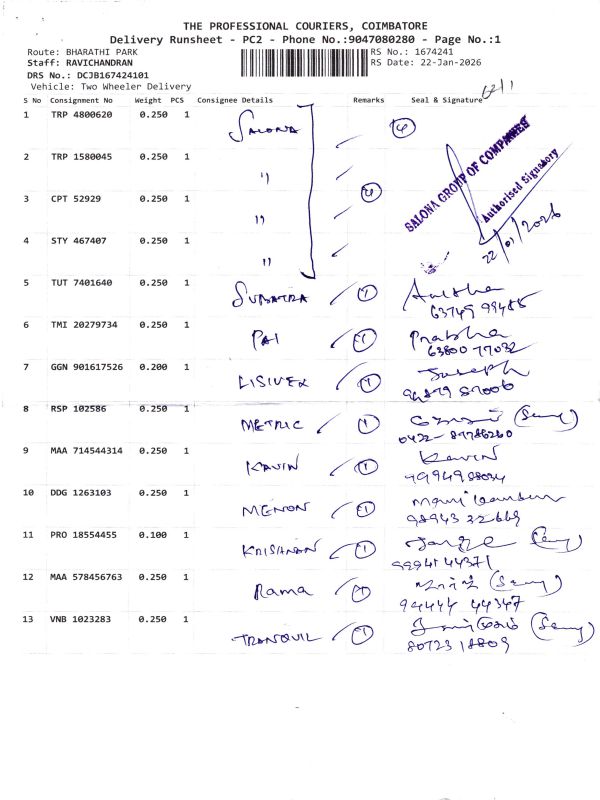 THE PROFESSIONAL COURIERS, COIMBATORE
Delivery Runsheet - PC2 - Phone No.:9047080280 - Page No.:1
Route: BHARATHI PARK RS No.: 1674241
Staff: RAVICHANDRAN RS Date: 22-Jan-2026
DRS No.: DCJB167424101
Vehicle: Two Wheeler Delivery
S No Consignment No Weight PCS Consignee Details Remarks Seal & Signature
1 TRP 4800620 0.250 1 SALONA
2 TRP 1580045 0.250 1 "
3 CPT 52929 0.250 1 " 4
SALONA GROUP OF COMPANIES
Authorised Signatory
22/01/2026
4 STY 467407 0.250 1 "
5 TUT 7401640 0.250 1 SUBATRA 1
6 TMI 20279734 0.250 1 PAI 1 Prabha
63800 77032
7 GGN 901617526 0.200 1 1 Joseph
8 RSP 102586 0.250 1 METRIC 1
9 MAA 714544314 0.250 1 KAVIN 1 Kavin
10 DDG 1263103 0.250 1 MENON 1
98943 32669
11 PRO 18554455 0.100 1 KRISHNAN 1
99941 44371
12 MAA 578456763 0.250 1 Rama 1
94444 44347
13 VNB 1023283 0.250 1 TRANQUIL 1
80723 18809